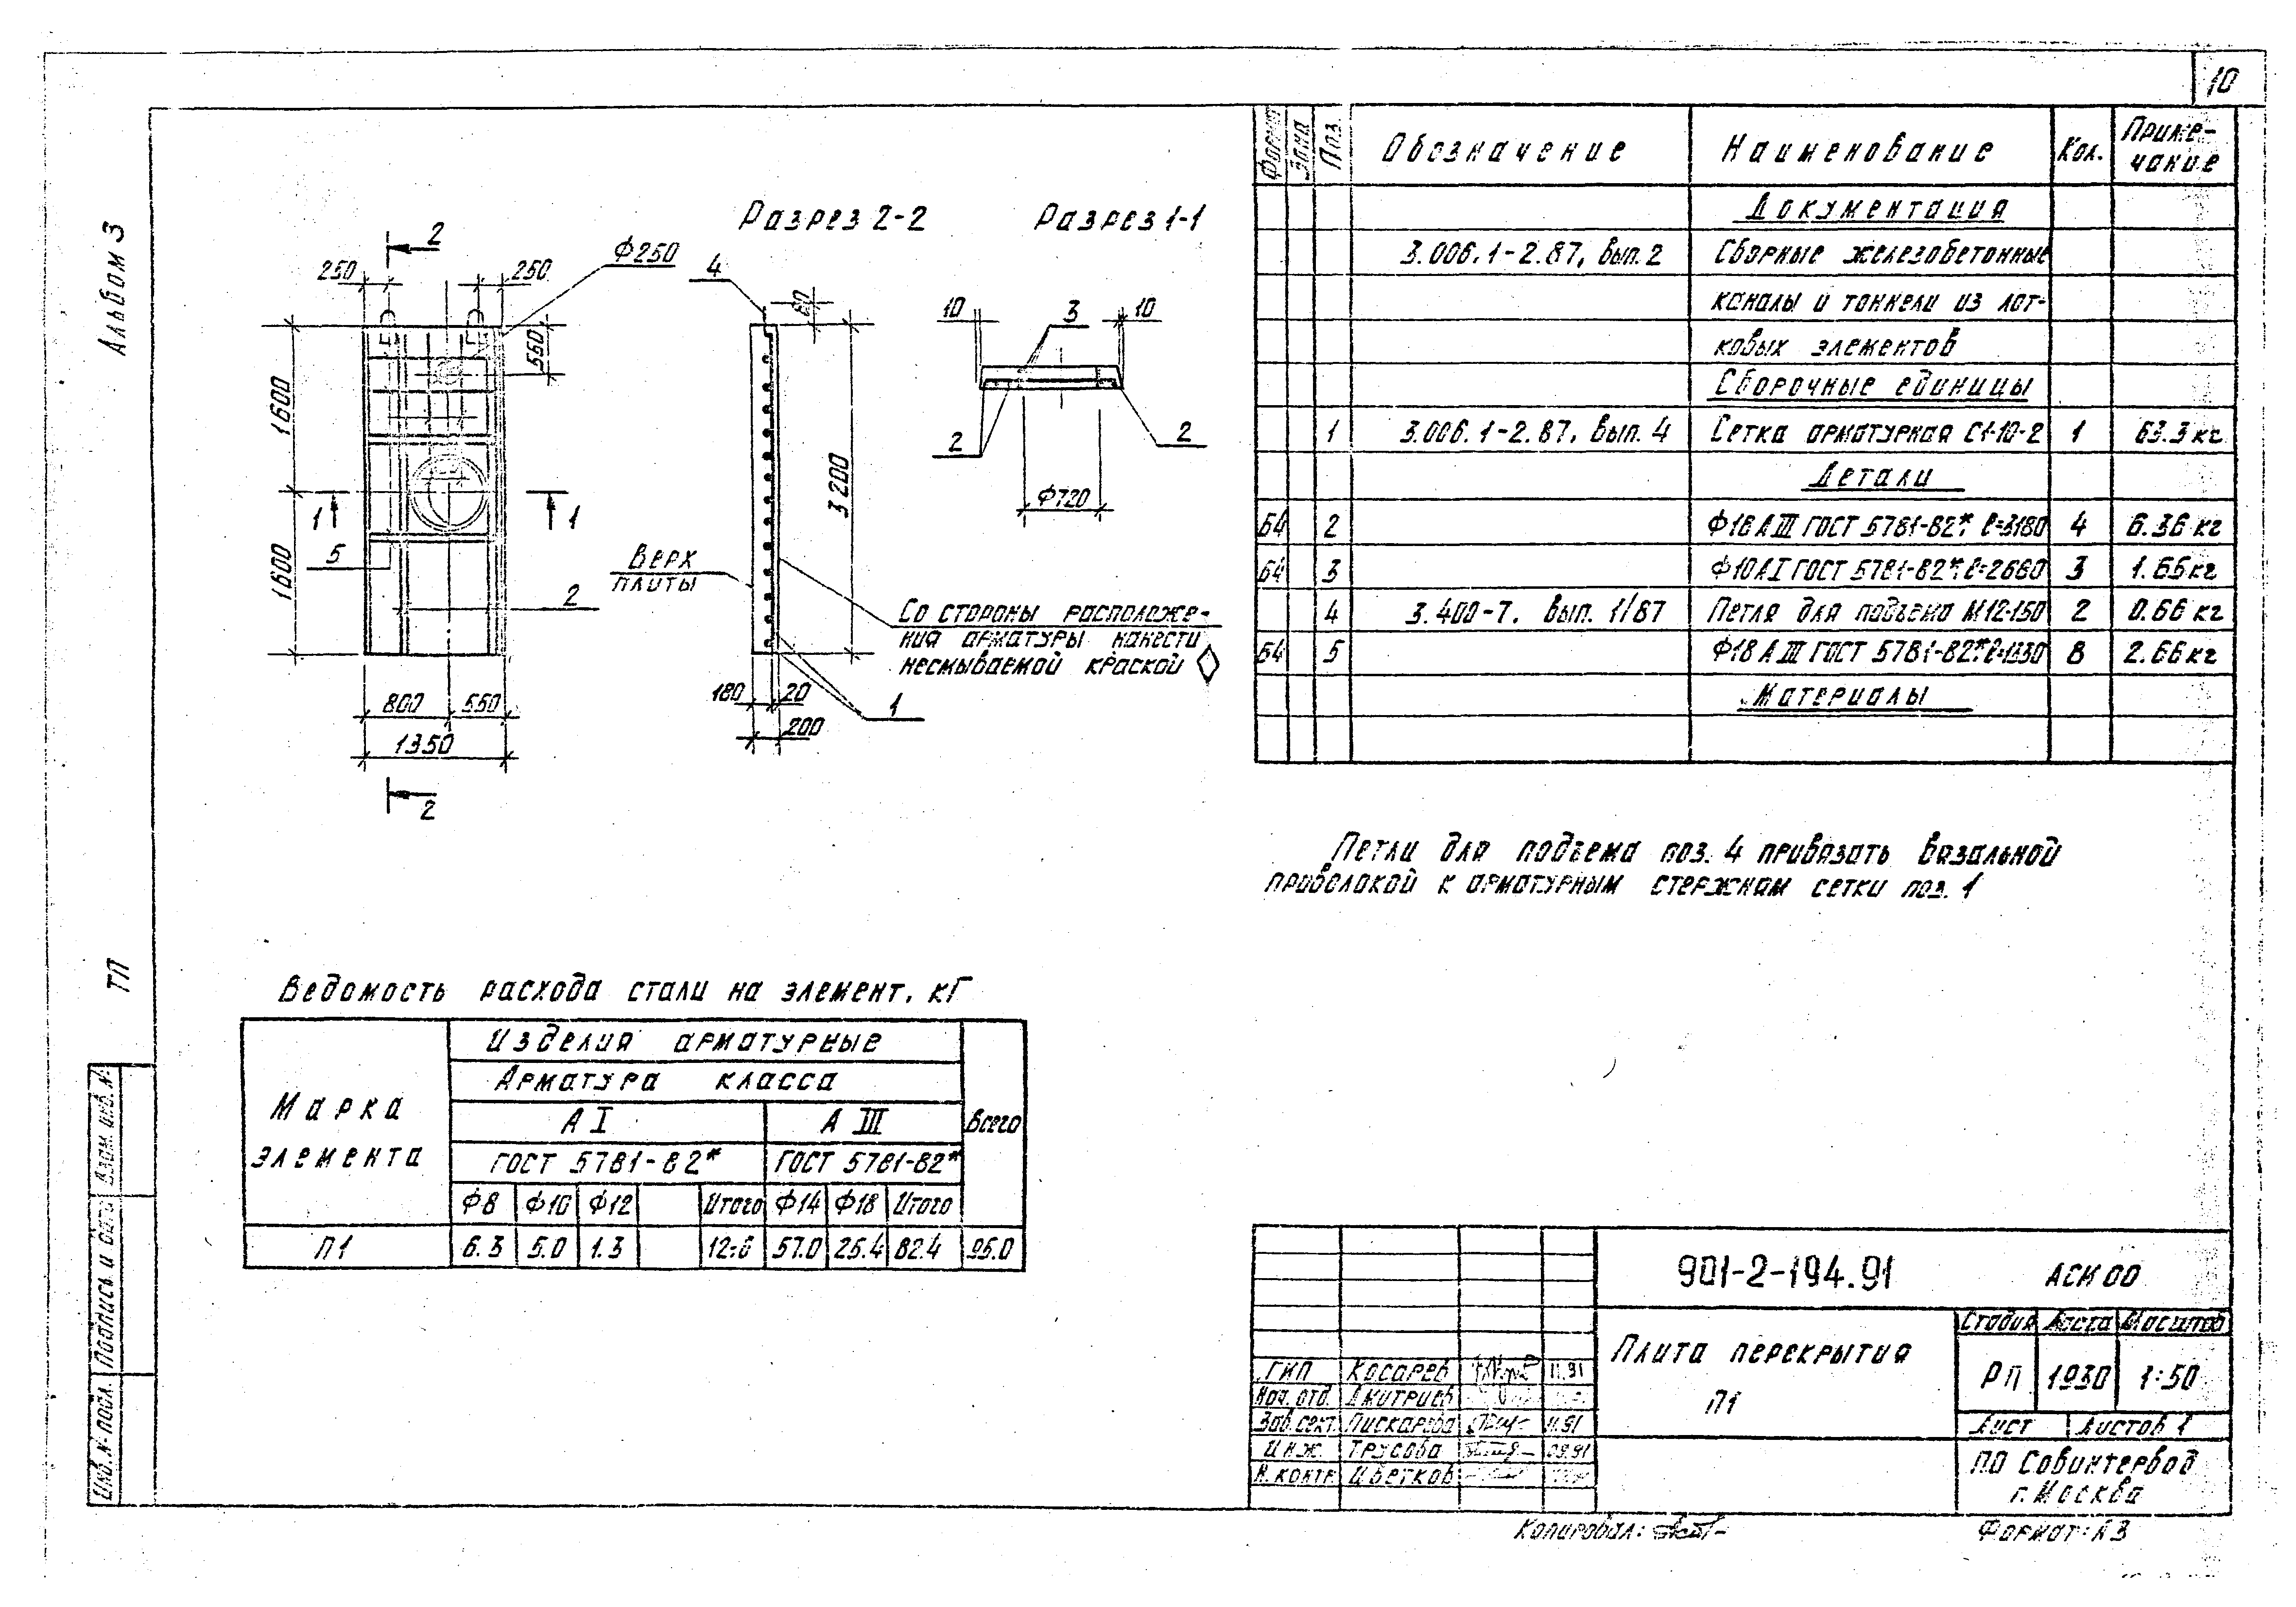 10
Альбом 3
ТП
Взам. инв. №
Подпись и дата
Инв. № подл.
Разрез 2-2
Разрез 1-1
2
Ф250
4
250
250
60
10
3
10
550
1600
1600
3200
2
2
Ф720
1
1
5
2
Верх
плиты
Со стороны расположе-
ния арматуры нанести
несмываемой краской
800
550
1350
180
20
200
1
2
Форма
Зона
Поз.
Обозначение
Наименование
Кол.
Приме-
чание
Документация
3.006.1-2.87, вып. 2 Сборные железобетонные
каналы и тоннели из лот-
ковых элементов
Сборочные единицы
1 3.006.1-2.87. вып. 4 Сетка арматурная С1-10-2 1 63.3 кг
Детали
Б4 2 Ф18 А III ГОСТ 5781-82* ℓ=3180 4 6.36 кг
Б4 3 Ф10 А I ГОСТ 5781-82*, ℓ=2660 3 1.66 кг
4 3.400-7. вып. 1/87 Петля для подъема М12-150 2 0.66 кг
Б4 5 Ф18 А III ГОСТ 5781-82* ℓ=1330 8 2.66 кг
Материалы
Петли для подъема поз. 4 привязать вязальной
проволокой к арматурным стержням сетки поз. 1
Ведомость расхода стали на элемент, кг
Марка
элемента
Изделия арматурные
Арматура класса
А I А III
Всего
ГОСТ 5781-82* ГОСТ 5781-82*
Ф8 Ф10 Ф12 Итого Ф14 Ф18 Итого
П1 6.3 5.0 1.3 12.6 57.0 25.4 82.4 95.0
901-2-194.91 АСИ 00
Плита перекрытия
П1
Стадия Масса Масштаб
РП 1930 1:50
Лист Листов 1
ПО Совинтервод
г. Москва
ГИП Косарев 11.91
Нач. отд. Дмитриев
Зав. сект. Пискарева 11.91
Инж. Трусова 09.91
Н. контр. Цветков
Копировал:
Формат: А3